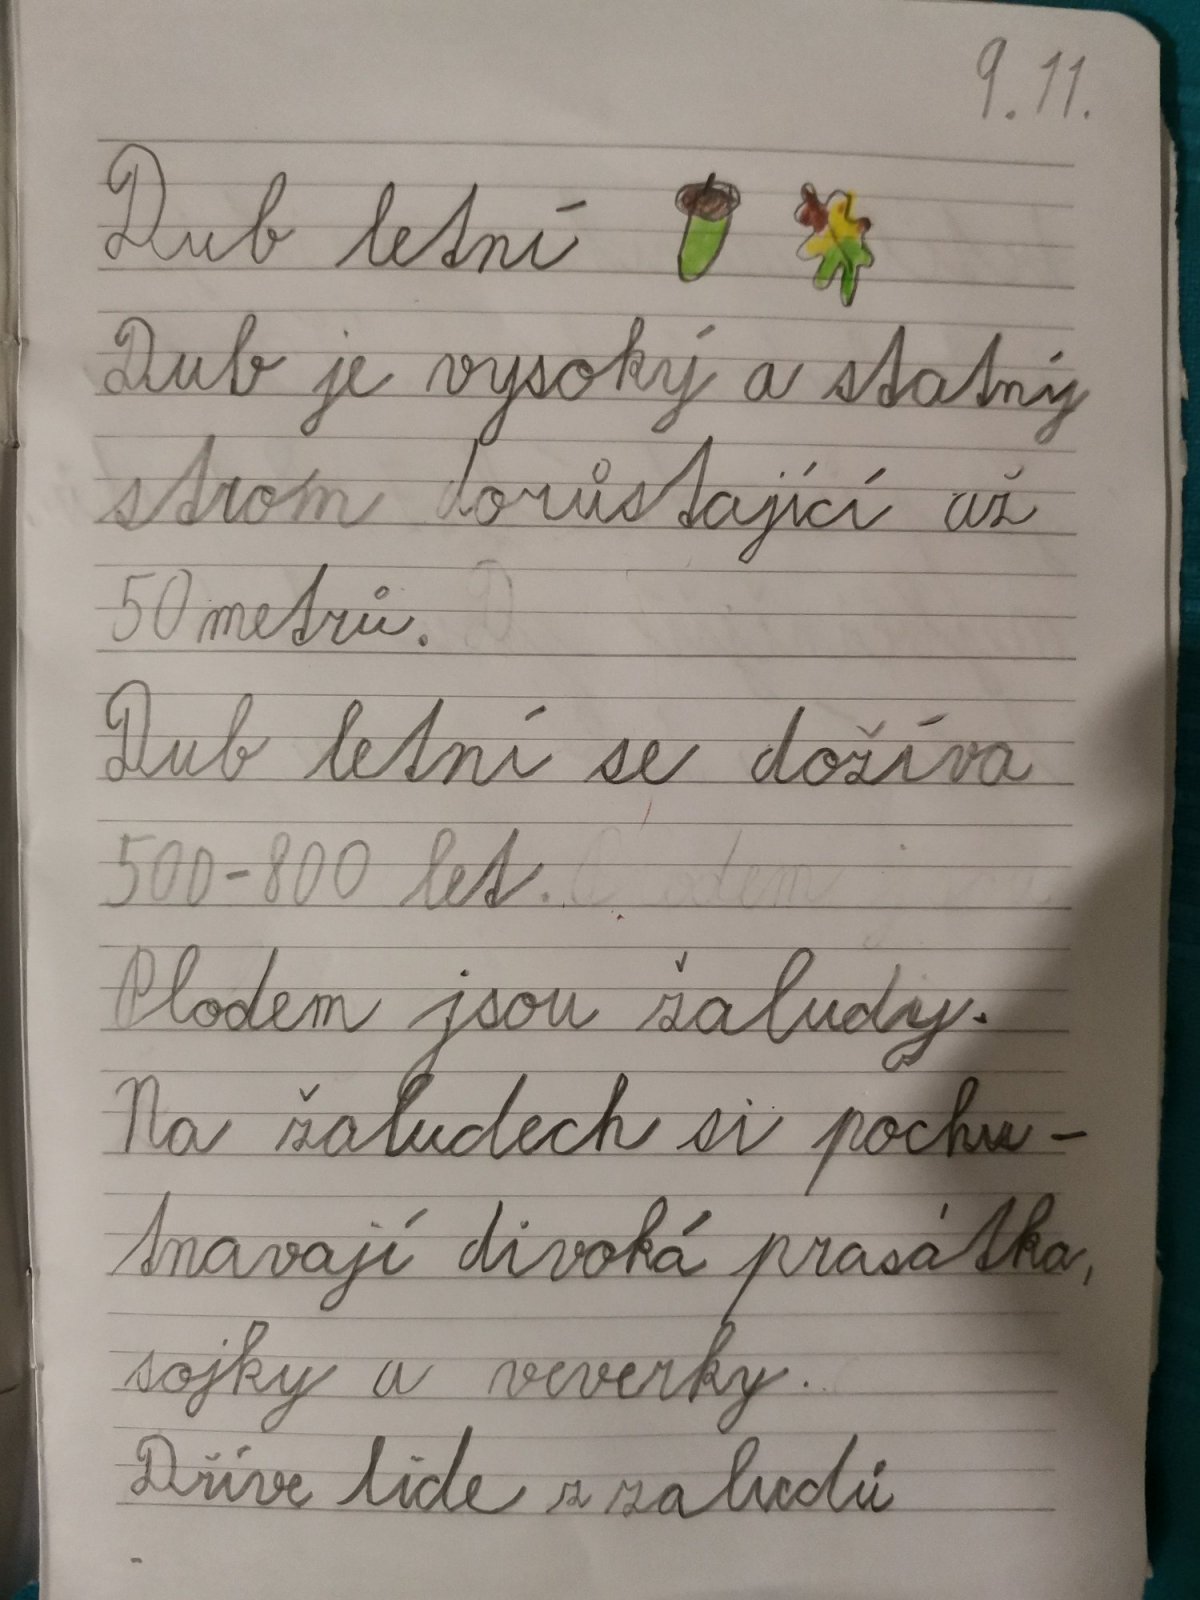 9.11.
Dub letní
Dub je vysoký a statný
strom dorůstající až
50 metrů.
Dub letní se dožíva
500-800 let.
Plodem jsou žaludy.
Na žaludech si pochu-
tnavají divoká prasátka,
sojky a veverky.
Dříve lide z zaludů